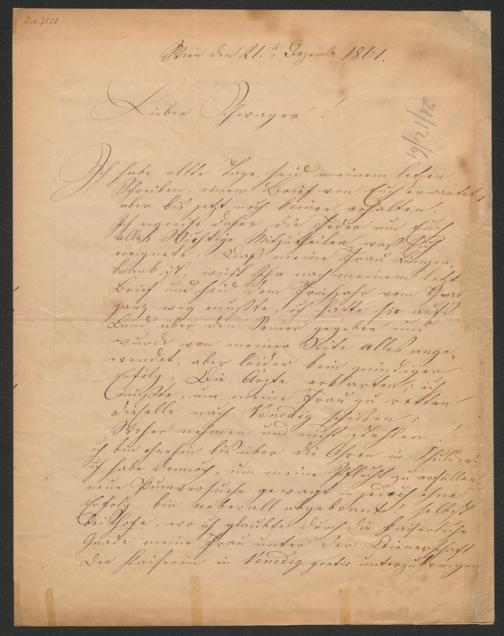 Wien den 21. Dezember 1861.
Lieber Schwager!
Ich habe alle Tage seid meinem letzten
Schreiben, einen Brief von Euch erwartet,
aber bis jetzt noch keinen erhalten.
Ich ergreife daher die Feder um Euch
alles Wichtige Mitzutheilen, was sich
ereignete. Daß meine Frau Lungen-
krank ist, wißt Ihr nach meinem letzt
Brief und seid dem Frühjahr vom
ganz weg mußte, ich hatte sie aufs
Land über den Sommer gegeben und
wurde von meiner Seite alles ange-
wendet, aber leider kein günstiger
Erfolg. Die Ärzte erklärten: ich
müßte, um meine Frau zu retten
dieselbe nach Venedig schicken;
Woher nehmen und nicht stehlen!
ich bin ohnehin bis über die Ohren in Schulden
ich habe dennoch, um meine Pflicht zu erfüllen
neue Pumpversuche gewagt – jedoch ohne
Erfolg bin überall abgebrannt! selbst
bei Hofe, wo ich glaubte durch die Kaiserliche
Gnade meine Frau unter der Dienerschaft
der Kaiserin in Venedig gratis unterzubringen